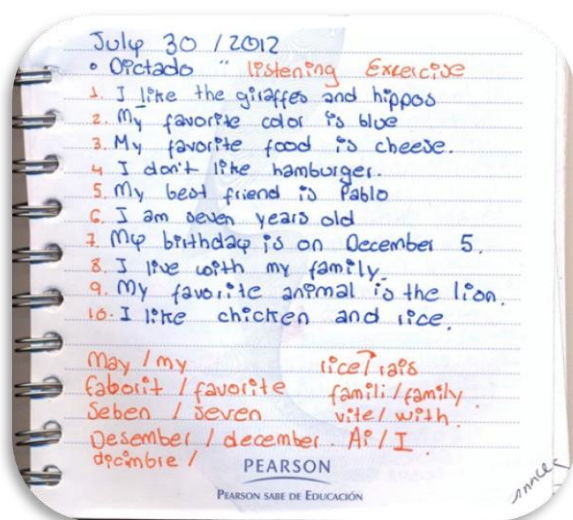 July 30 / 2012
• Dictado " listening Excercise
1. I like the giraffes and hippos
2. My favorite color is blue
3. My favorite food is cheese.
4 I don't like hamburger.
5. My best friend is Pablo
6. I am seven years old
7. My birthday is on December 5.
8. I live with my family.
9. My favorite animal is the lion.
10. I like chicken and rice.
May / my rice / rais
faborit / favorite famili / family
Seben / seven vite / with
Desember / december. Ai / I
dicimbre /
PEARSON
PEARSON SABE DE EDUCACIÓN